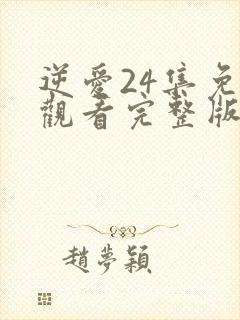 逆愛24集免
觀看完整版
趙夢穎